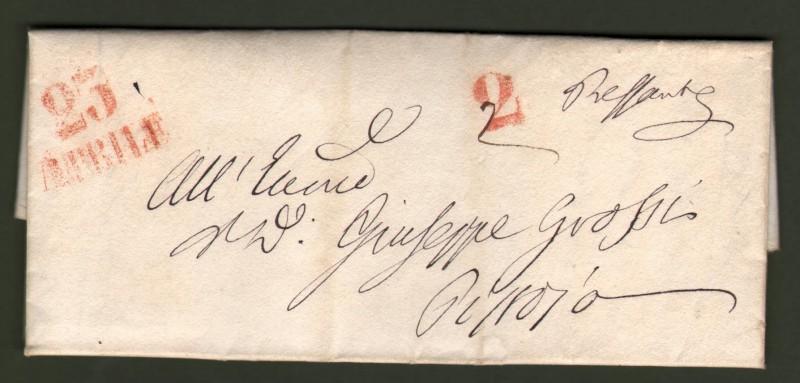 23
APRILE
2
2
Pressante
All'Eccmo
Sig. D. Giuseppe Grossi
Pistoja